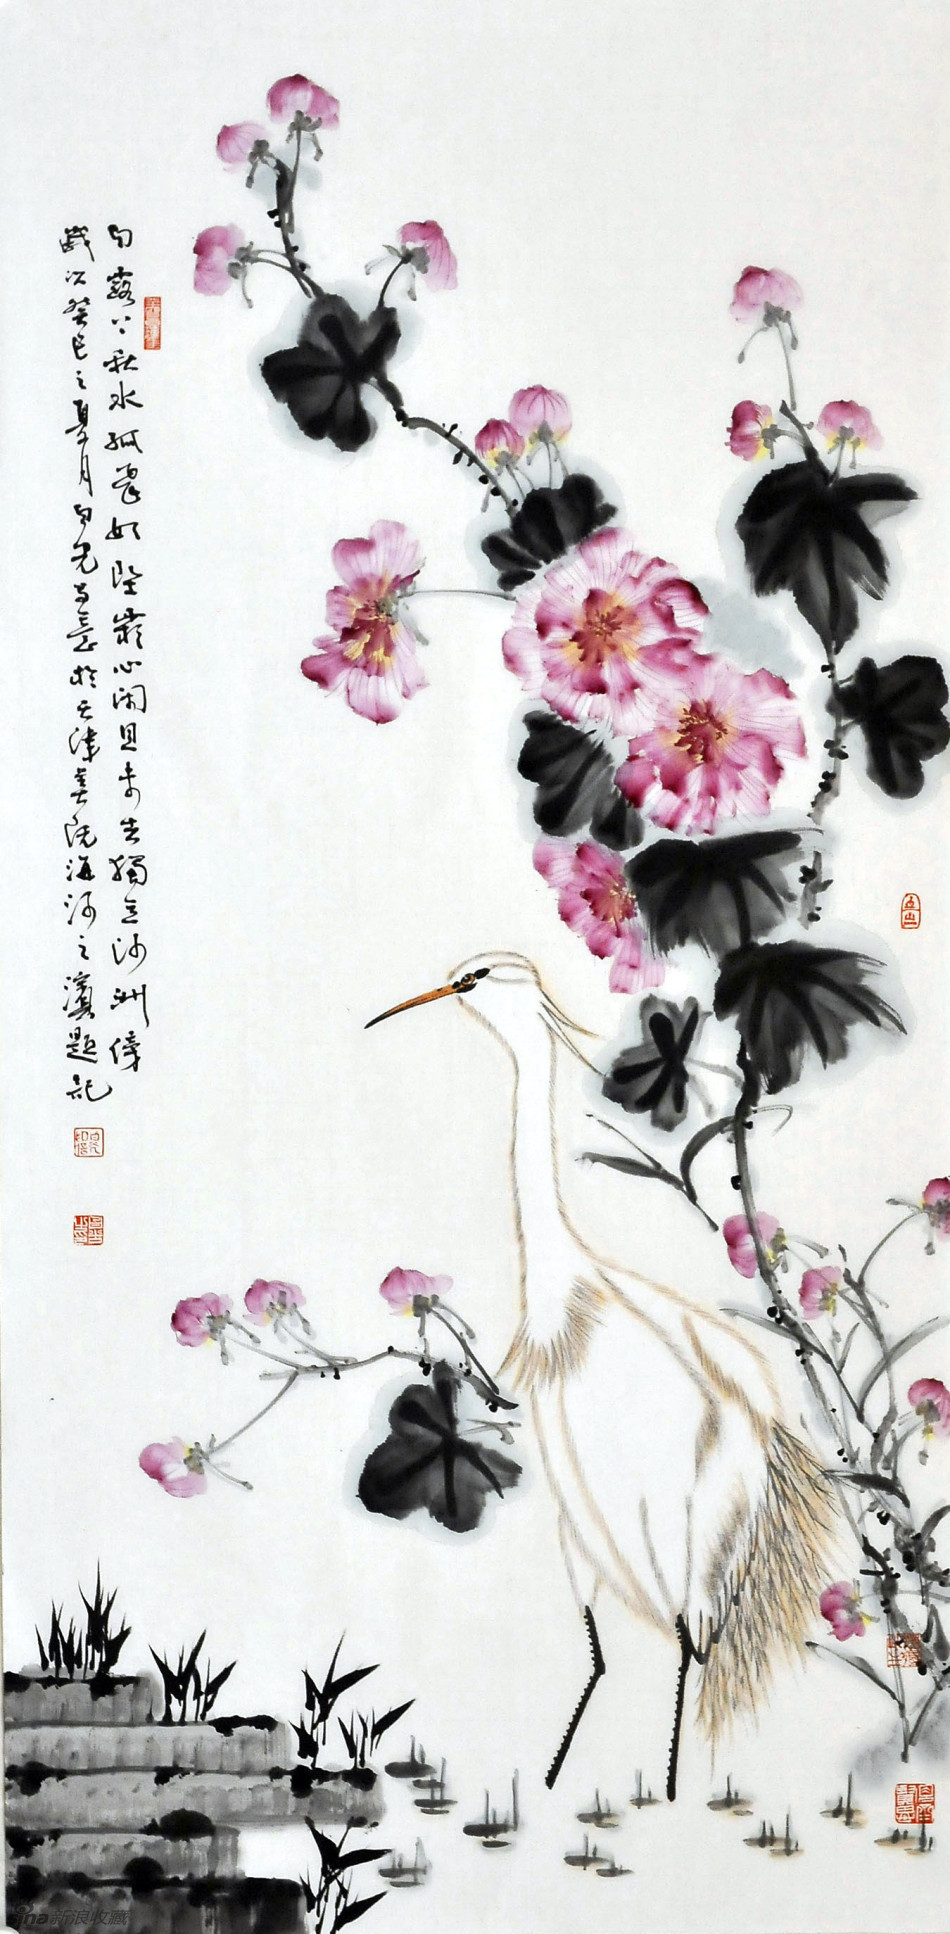 白鷺下秋水孤飛如墜霜心闲且未去獨立沙洲傍
歲次癸巳之夏月白写意於天津美院海河之濱題記
sina 新浪收藏